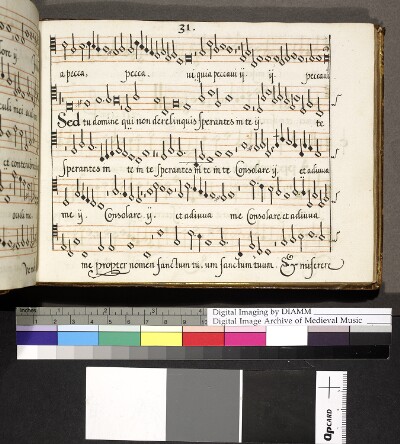 31.
a pecca, pecca. ui quia peccaui ij. ij. peccaui
Sed tu domine qui non derelinquis sperantes in te ij. te
sperantes in te in te sperantes in te in te Consolare ij. et adiuua
me ij. Consolare ij. et adiuua me Consolare et adiuua
me propter nomen sanctum tu. um sanctum tuum. Et miserere
inches
Digital Imaging by DIAMM
Digital Image Archive of Medieval Music
QPCARD